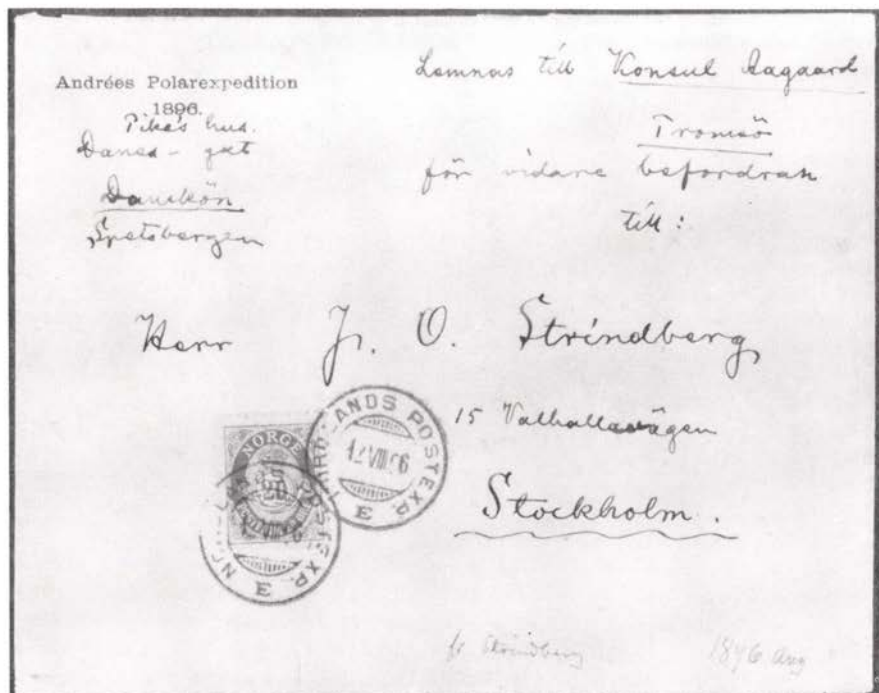 Andrées Polarexpedition
1896.
Pikes hus.
Danes-gat
Danskön
Spetsbergen
Lemnas till Konsul Aagaard
Tromsö
för vidare befordran
till:
Herr J. O. Strindberg
15 Valhallavägen
Stockholm.
NORGE
20
NORDLANDS POSTEXP.
12 VIII 96
E
NORDLANDS POSTEXP.
E
fr Strindberg
1896 Aug